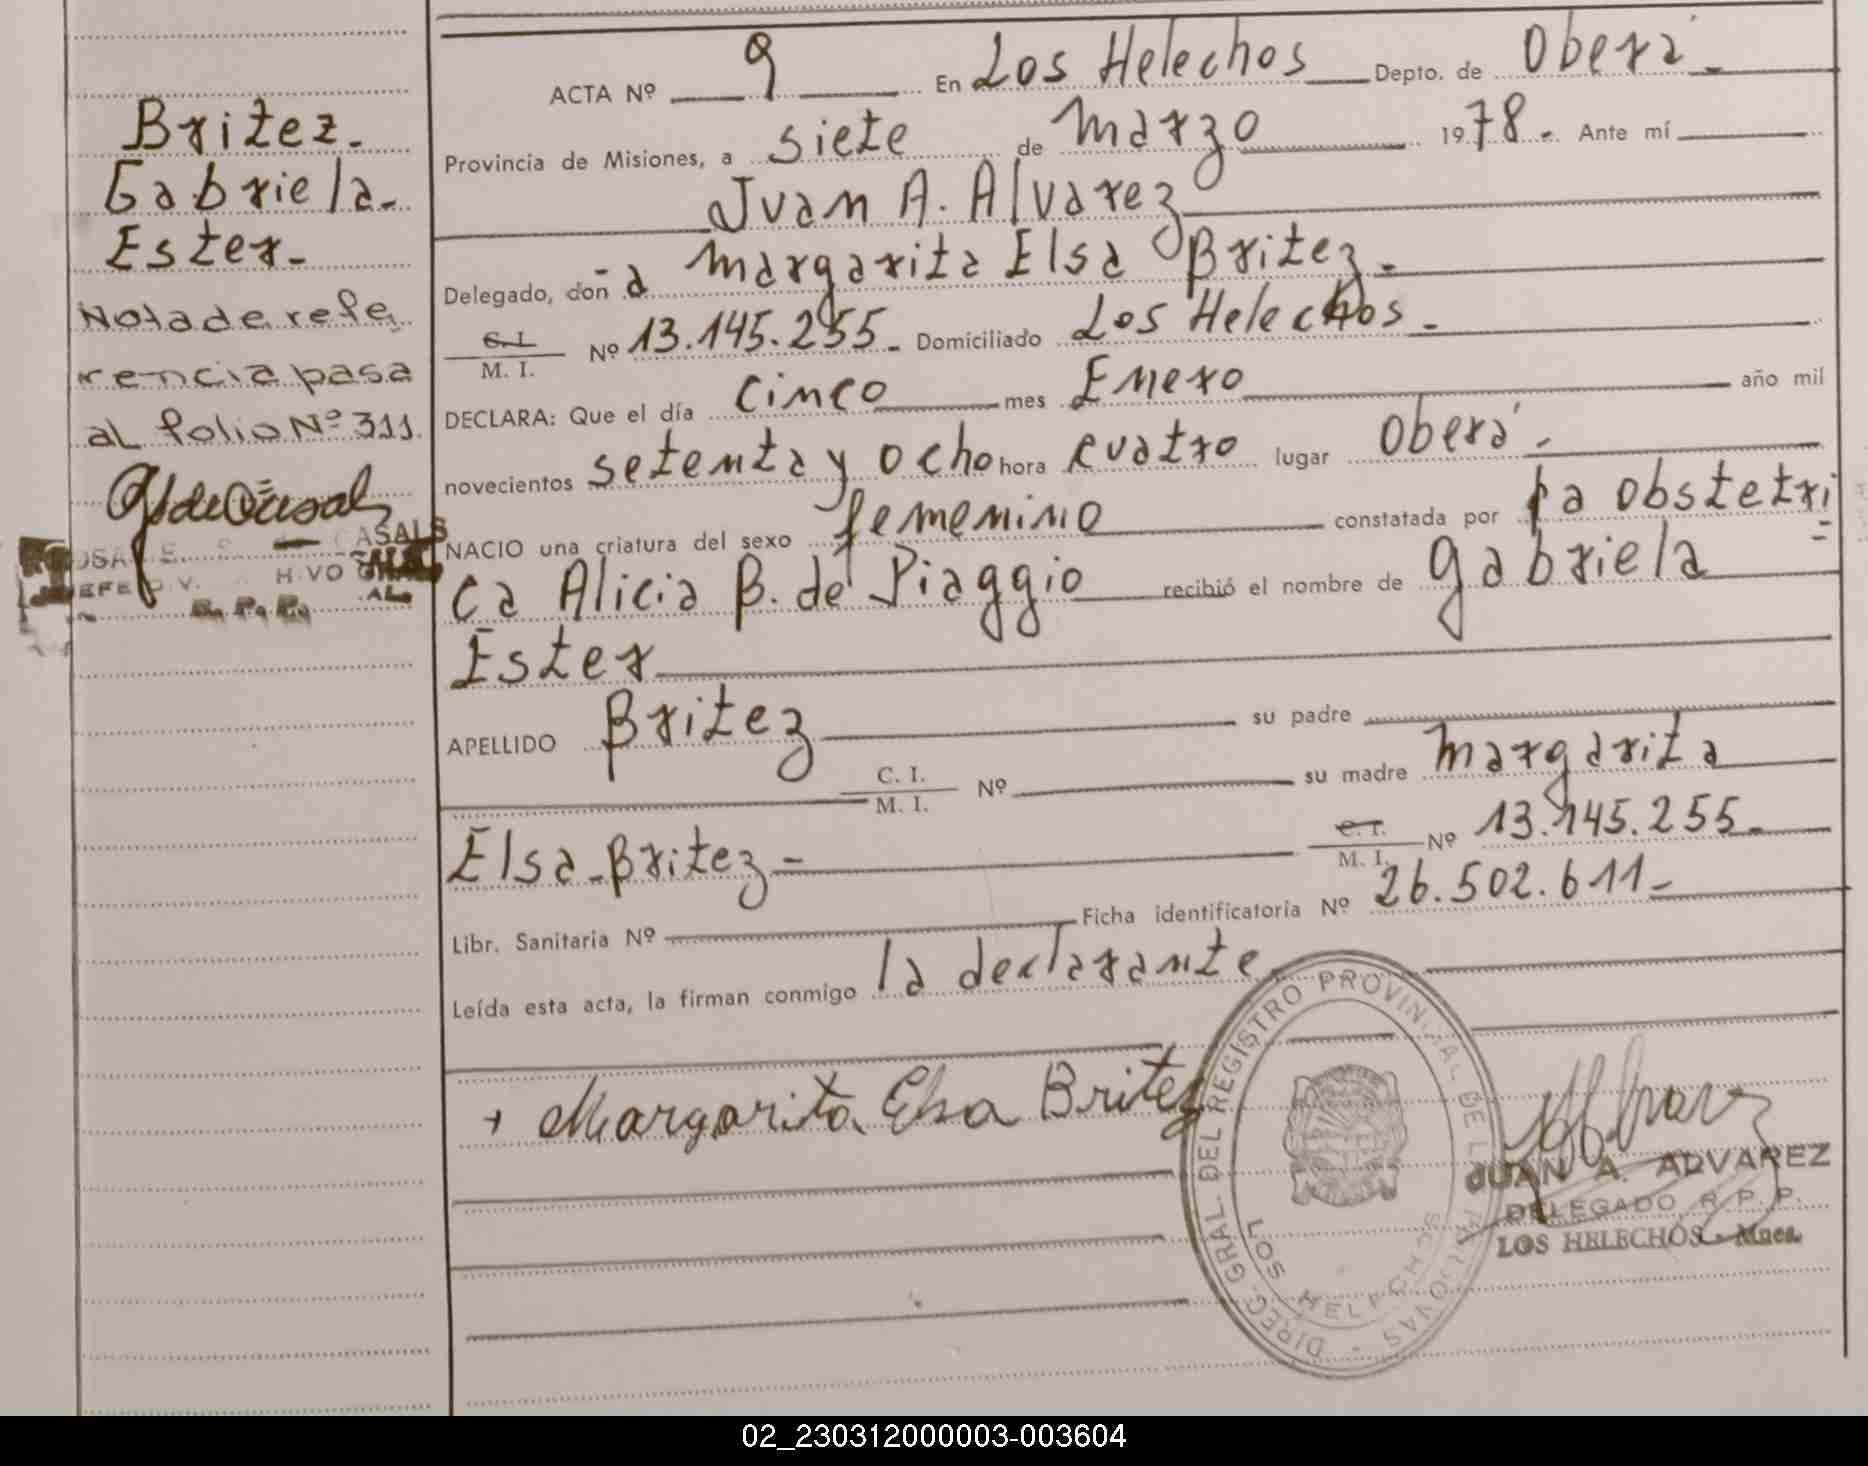 Britez.
Gabriela.
Ester.
Nota de refe
rencia pasa
al folio Nº 311.
ASALS
HIVO
ACTA Nº 9 En Los Helechos Depto. de Oberá.
Provincia de Misiones, a siete de Marzo 1978. Ante mí
Juan A. Alvarez
Delegado, don a Margarita Elsa Britez.
C. I.
M. I. Nº 13.145.255. Domiciliado Los Helechos.
DECLARA: Que el día cinco mes Enero año mil
novecientos setenta y ocho hora cuatro lugar Oberá.
NACIO una criatura del sexo femenino constatada por la obstetri
ca Alicia B. de Piaggio recibió el nombre de Gabriela
Ester
APELLIDO Britez su padre
C. I.
M. I. Nº su madre Margarita
Elsa Britez C. I.
M. I. Nº 13.145.255.
Libr. Sanitaria Nº Ficha identificatoria Nº 26.502.611
Leída esta acta, la firman conmigo la declarante
+ Margarita Elsa Britez
DIREC. GRAL. DEL REGISTRO PROVINCIAL DE LAS PERSONAS
LOS HELECHOS
JUAN A. ALVAREZ
DELEGADO R. P. P.
LOS HELECHOS - Mnes.
02_230312000003-003604